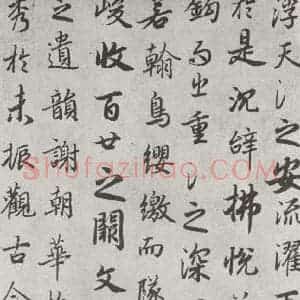 浮天淵之安流濯
於是沉辭拂悅
鉤而出重淵之深
若翰鳥纓繳而隊
峻收百世之闕文
之遺韻謝朝華
秀於未振觀古今